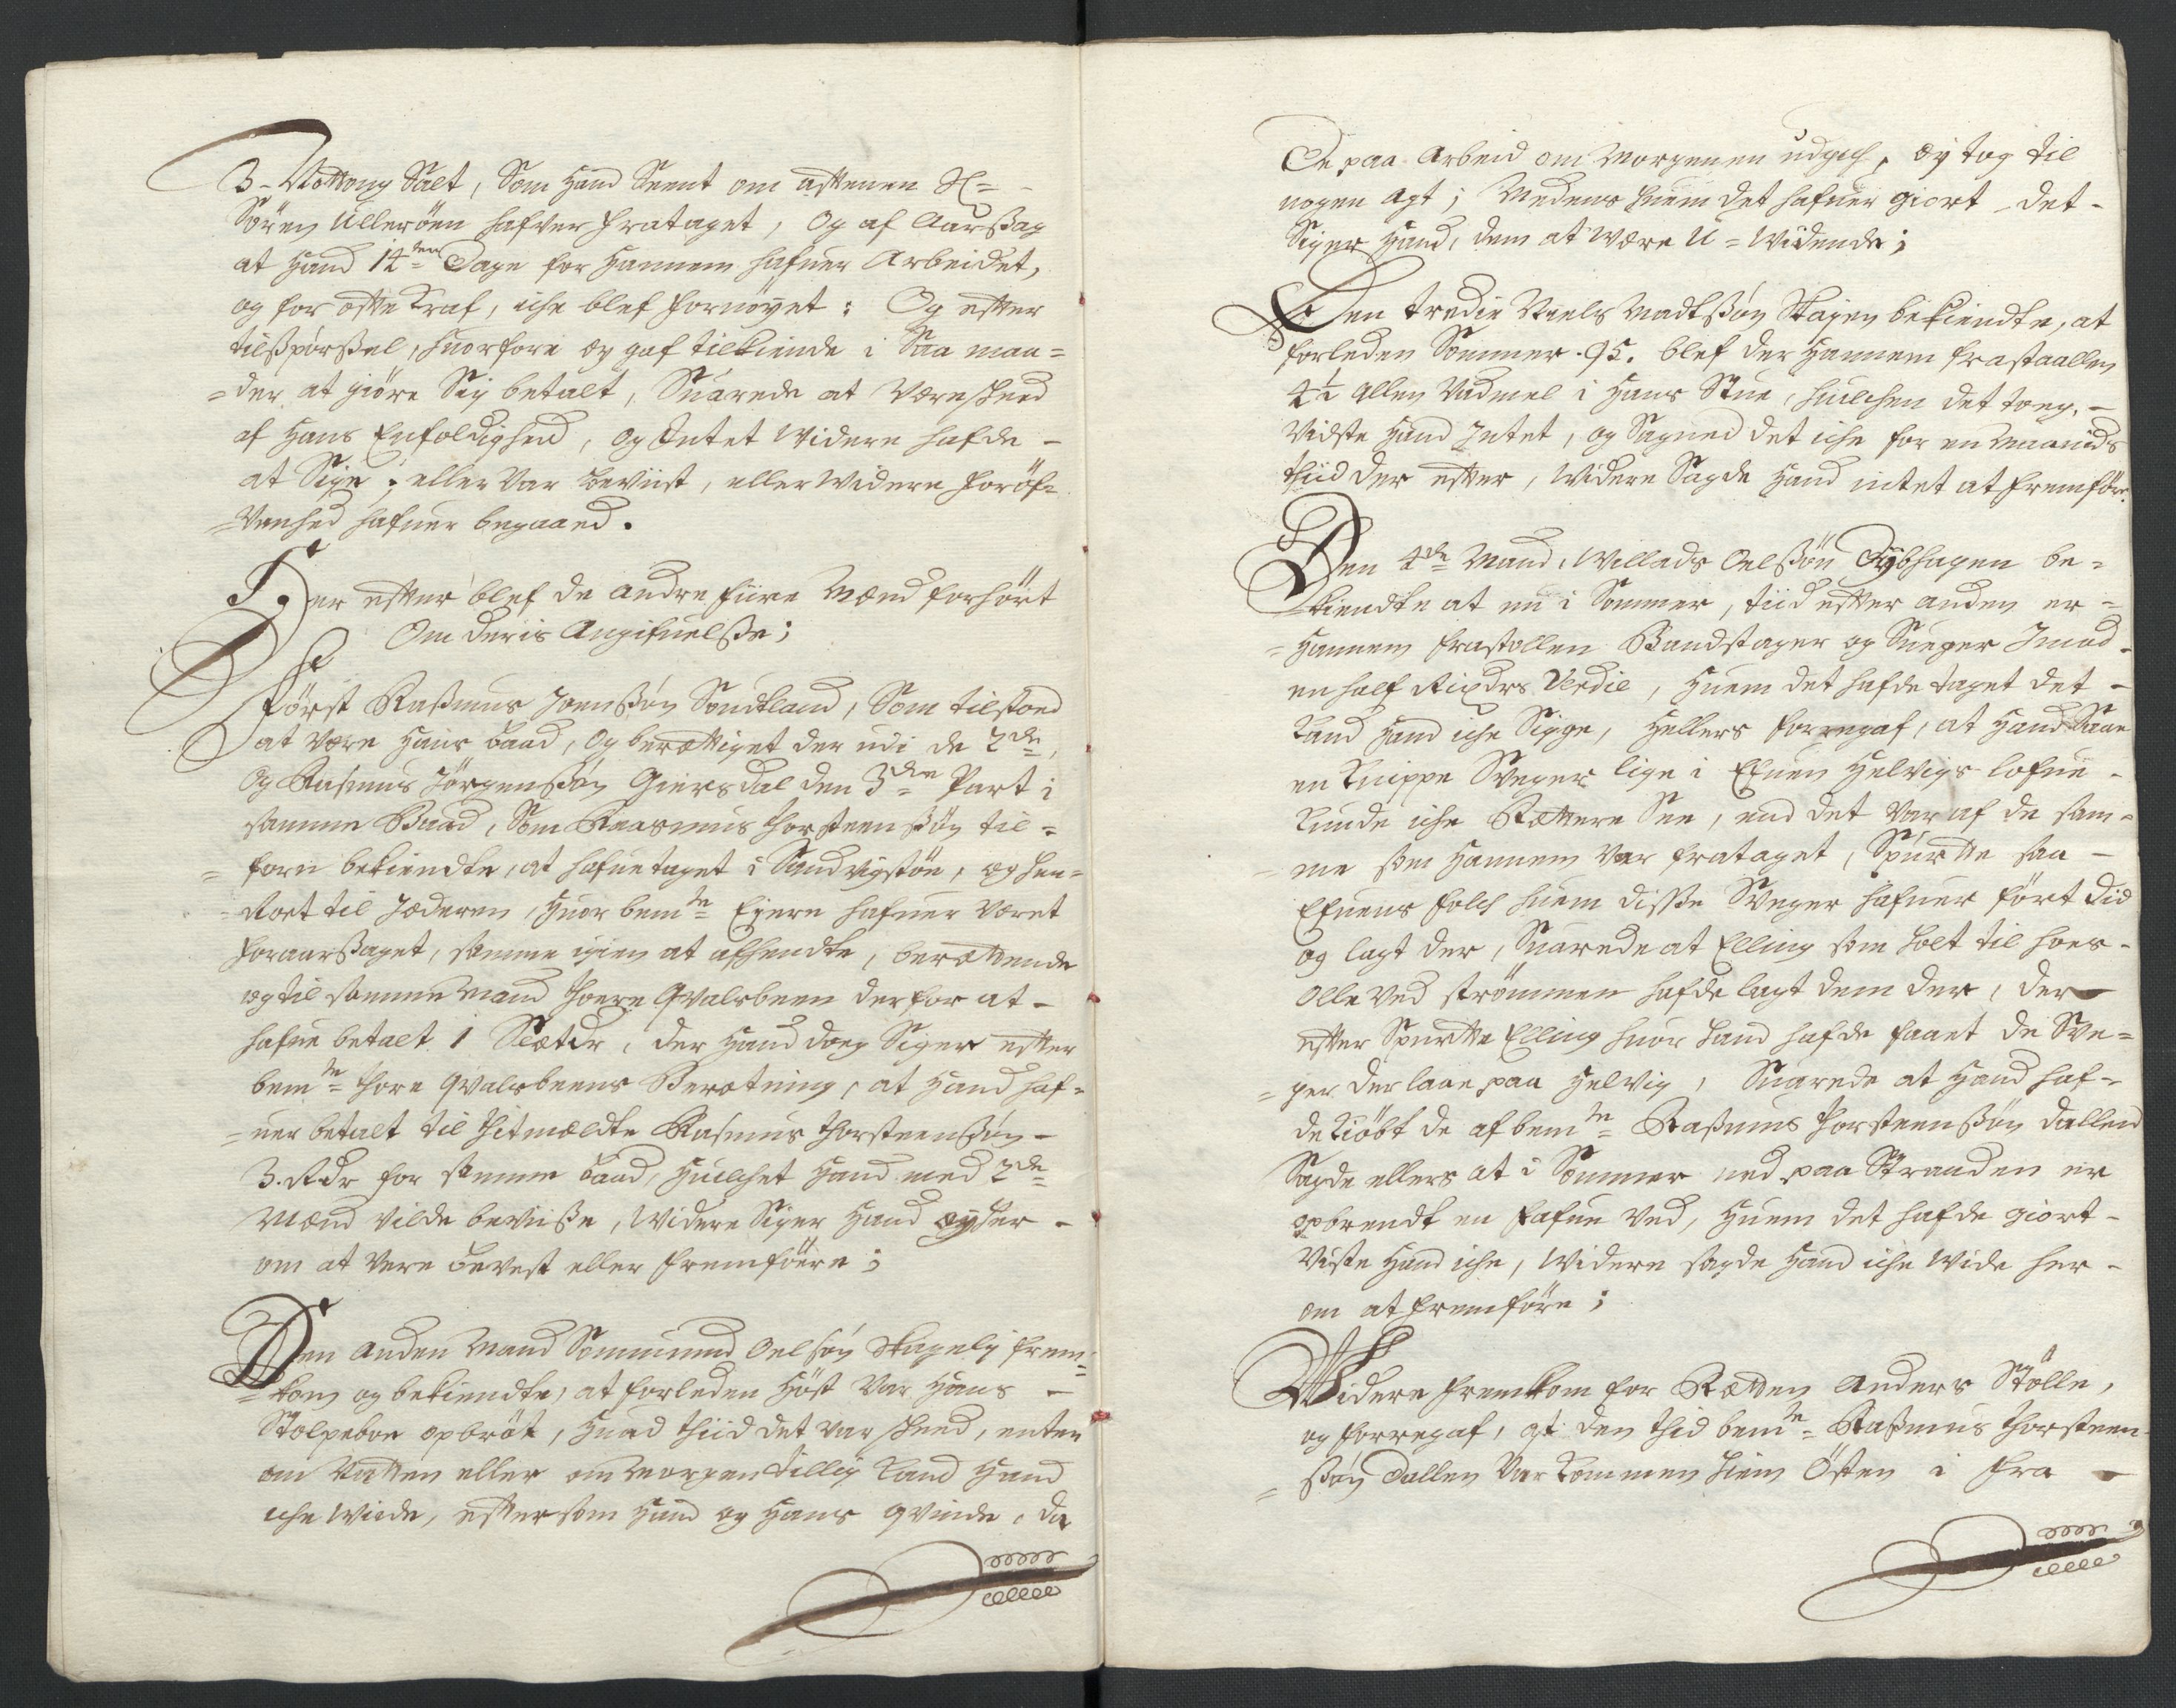 3 - Sætting Salt, Som Hand Seent om aftenen H=
Sören Ulleröen hafver frataget, Og af Aarsag
at Hand 14ten Dage for Hannem hafuer Arbeidet,
og for ofte Kraf, iche blef fornöyet: Og efter
tilspörssel, huorfore ey gaf tilkiende i Saa maa=
=der at giöre Sig betalt, Suarede at Være skeed
af Hans Enfoldighed, Og Intet Widere hafde -
at Sige, eller Var beviist, eller Widere foröf=
=venhed hafuer begaaed.
Her efter blef de andre fiire Mænd forhört
Om deris Angifuelsse;
Först Rassmus Joenssön Sondtland, Som tilstoed
at Være Hans baad, Og berættiget der udi de 2de,
Og Rasmus Jörgenssön Giersdal den 3die Part i
samme Baad, Som Raasmus Thorsteenssön til=
=forn bekiendte, at hafue taget i Sandvigstöe, og hen=
=Rort til Jæderen, Huor bemte Eyere hafuer Været
foraarssaget, samme igien at afhendte, berættende
og til samme Mand Thore Qvalebeen derfor at -
hafue betalt 1 Sletdr, der Hand doeg Siger efter
bemte Thore Qvalebeens Berætning, at Hand haf=
=uer betalt til hitmældte Rasmus Thorsteenssön -
3. Rdr for samme baad, Huilchet Hand med 2de
Mænd vilde beviisse, Widere Siger Hand ey her -
om at Vere bevest eller fremföere;
Den Anden Mand Sommund Oelsön Skagely frem=
=kom og bekiendte, at forleden Höst Var Hans -
Stolpeboe opbröt, Huad thiid det var skeed, enten
om Natten eller om Morgen tillig kand Hand
iche Wiide, eftersom Hand og Hans qvinde, da
De paa Arbeid om Morgenen udgich, ey tog til
nogen Agt; Medens huem det hafuer giort det -
Siger Hand, dem at Være U=Widende;
Den tredie Niels Madtssön Skagen bekiendte, at
forleden Sommer .95. blef der Hannem frastaallen
4½ Allen Vadmel i Hans Stue, huilchen det toeg, -
Vidste Hand Intet, og Sagned det iche for en Maanids
thiid der efter, Widere Sagde Hand intet at fremföre.
Den 4de Mand, Willads Oelssön Dybhagen be=
kiendte at nu i Sommer, tiid efter anden er=
=Hannem frastollen Bandstager og Sueger Imod -
en half Rixdrs Verdie, Huem det hafde taget det -
kand Hand iche Sigge, Hellers forregaf, at Hand Saae
en knippe Sveger lige i Efuen Helvigs lofue -
kunde iche Rættere See, end det Var af de sam=
me som Hannem Var frataget, Spurtte saa -
Efuens folch huem disse Sveger hafuer fört did
og lagt der, Suarede at Elling som holt til hoes -
Olle Ved Strömmen hafde lagt dem der, der
efter Spurtte Elling huor Hand hafde faaet de Sve=
=ger der laae paa Helvig, Suarede at Hand haf=
de kiöbt de af bemte Rassmus Thorsteenssön Dallen
Sagde ellers at i Sommer ned paa Stranden er
opbrendt en fafne Ved, Huem det hafde giort -
Viste Hand iche, Widere sagde Hand iche Wide her -
om at fremföre;
Widere fremkom for Rætten Anders Stölle,
og forregaf, at den thid bemte Rassmus Thorsteen
=ssön Dallen Var kommen hiem Östen i fra